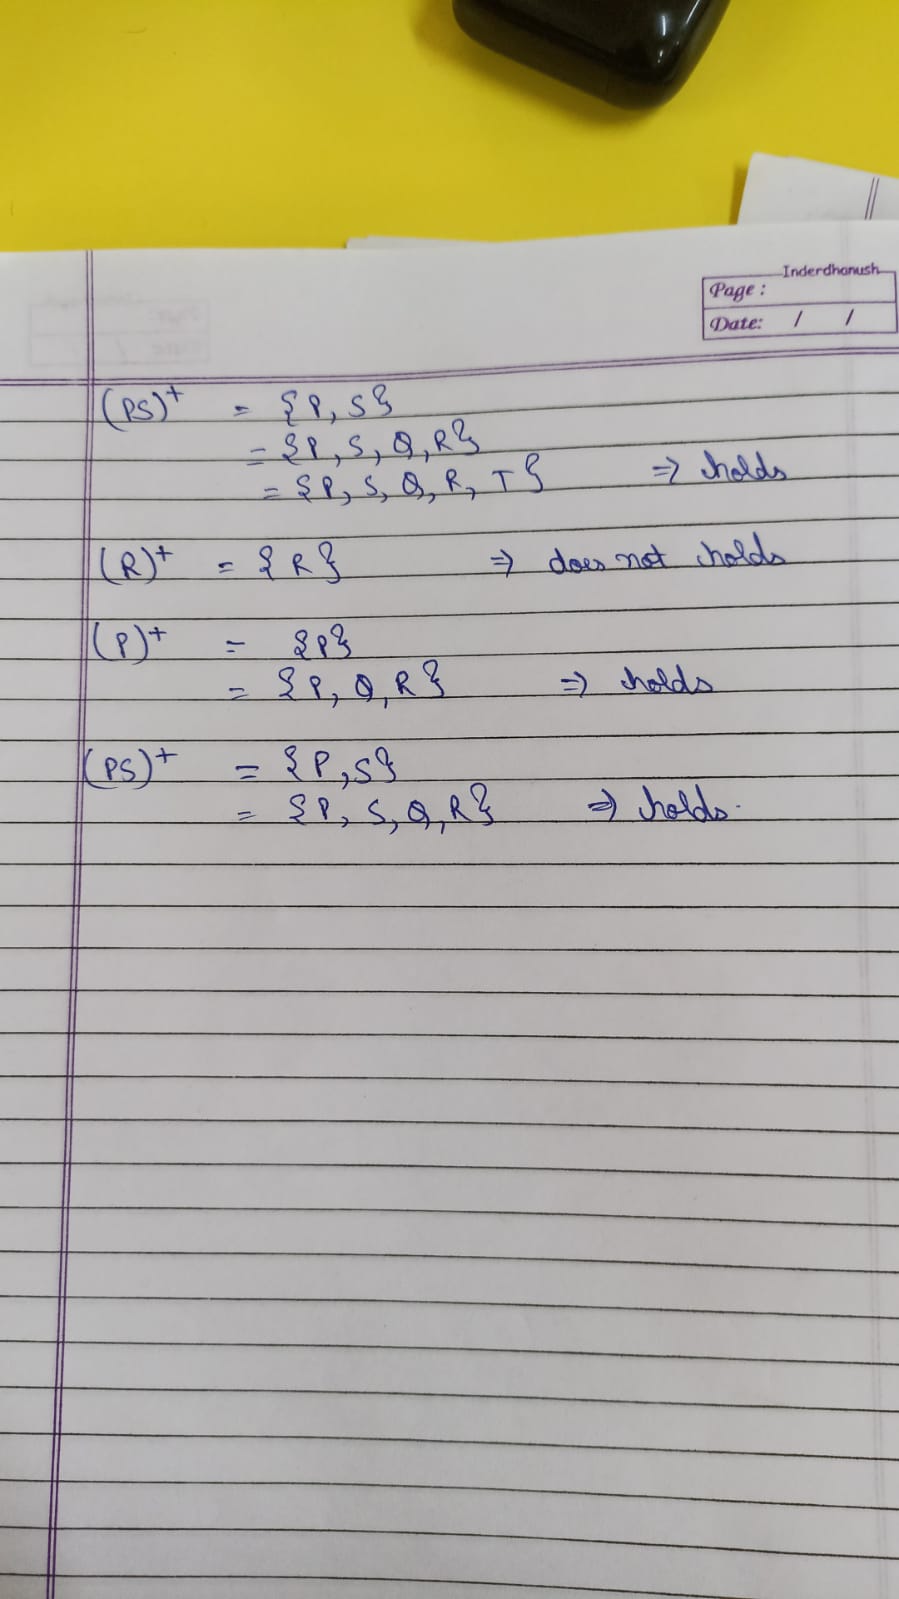 Inderdhanush
Page :
Date: / /
(PS)⁺ = {P, S}
= {P, S, Q, R}
= {P, S, Q, R, T} ⇒ holds
(R)⁺ = {R} ⇒ does not holds
(P)⁺ = {P}
= {P, Q, R} ⇒ holds
(PS)⁺ = {P, S}
= {P, S, Q, R} ⇒ holds.